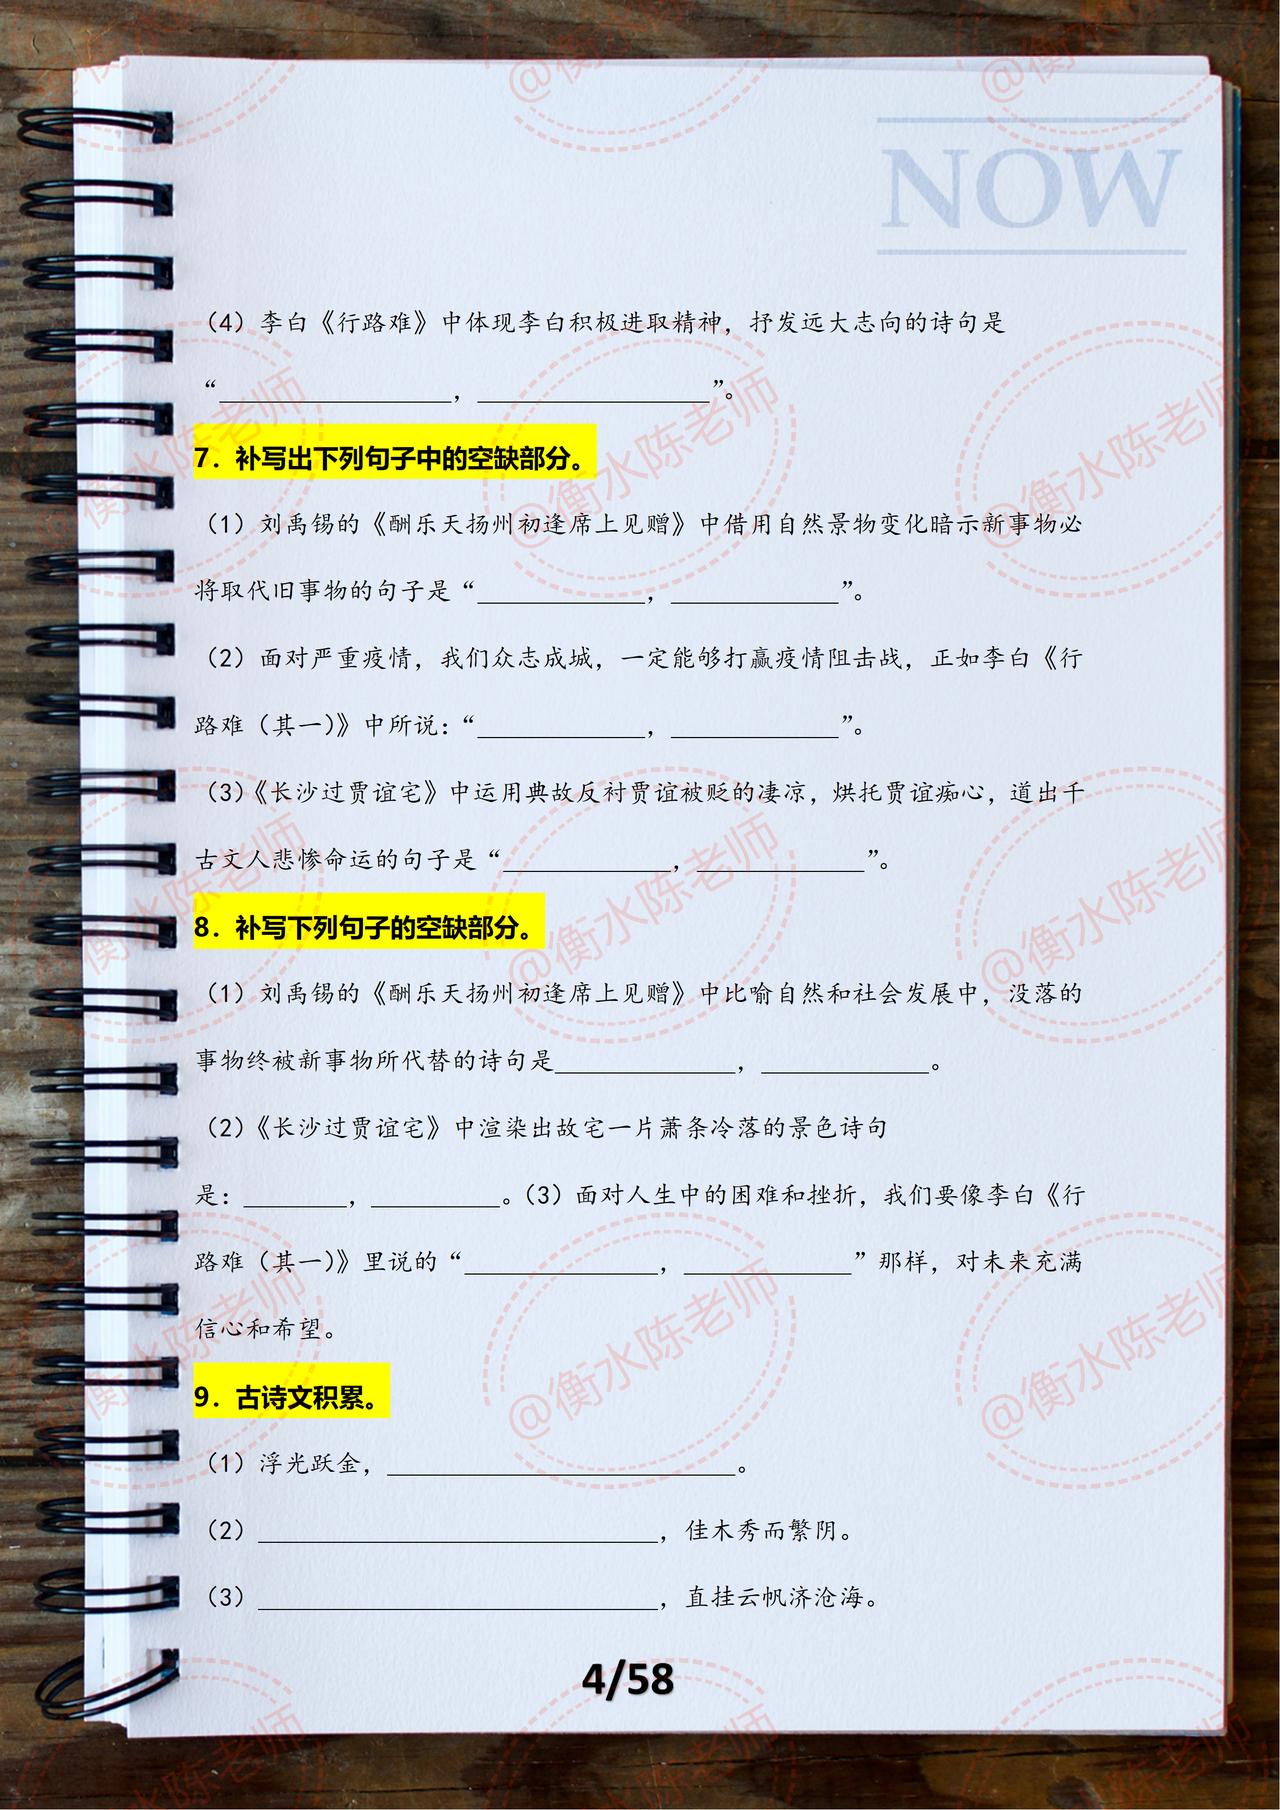 NOW
（4）李白《行路难》中体现李白积极进取精神，抒发远大志向的诗句是
“__________________，__________________”。
7．补写出下列句子中的空缺部分。
（1）刘禹锡的《酬乐天扬州初逢席上见赠》中借用自然景物变化暗示新事物必
将取代旧事物的句子是“_____________，_____________”。
（2）面对严重疫情，我们众志成城，一定能够打赢疫情阻击战，正如李白《行
路难（其一）》中所说：“_____________，_____________”。
（3）《长沙过贾谊宅》中运用典故反衬贾谊被贬的凄凉，烘托贾谊痴心，道出千
古文人悲惨命运的句子是“_____________，_____________”。
8．补写下列句子的空缺部分。
（1）刘禹锡的《酬乐天扬州初逢席上见赠》中比喻自然和社会发展中，没落的
事物终被新事物所代替的诗句是______________，_____________。
（2）《长沙过贾谊宅》中渲染出故宅一片萧条冷落的景色诗句
是：________，__________。（3）面对人生中的困难和挫折，我们要像李白《行
路难（其一）》里说的“_______________，_____________”那样，对未来充满
信心和希望。
9．古诗文积累。
（1）浮光跃金，___________________________。
（2）_______________________________，佳木秀而繁阴。
（3）_______________________________，直挂云帆济沧海。
4/58
@衡水陈老师